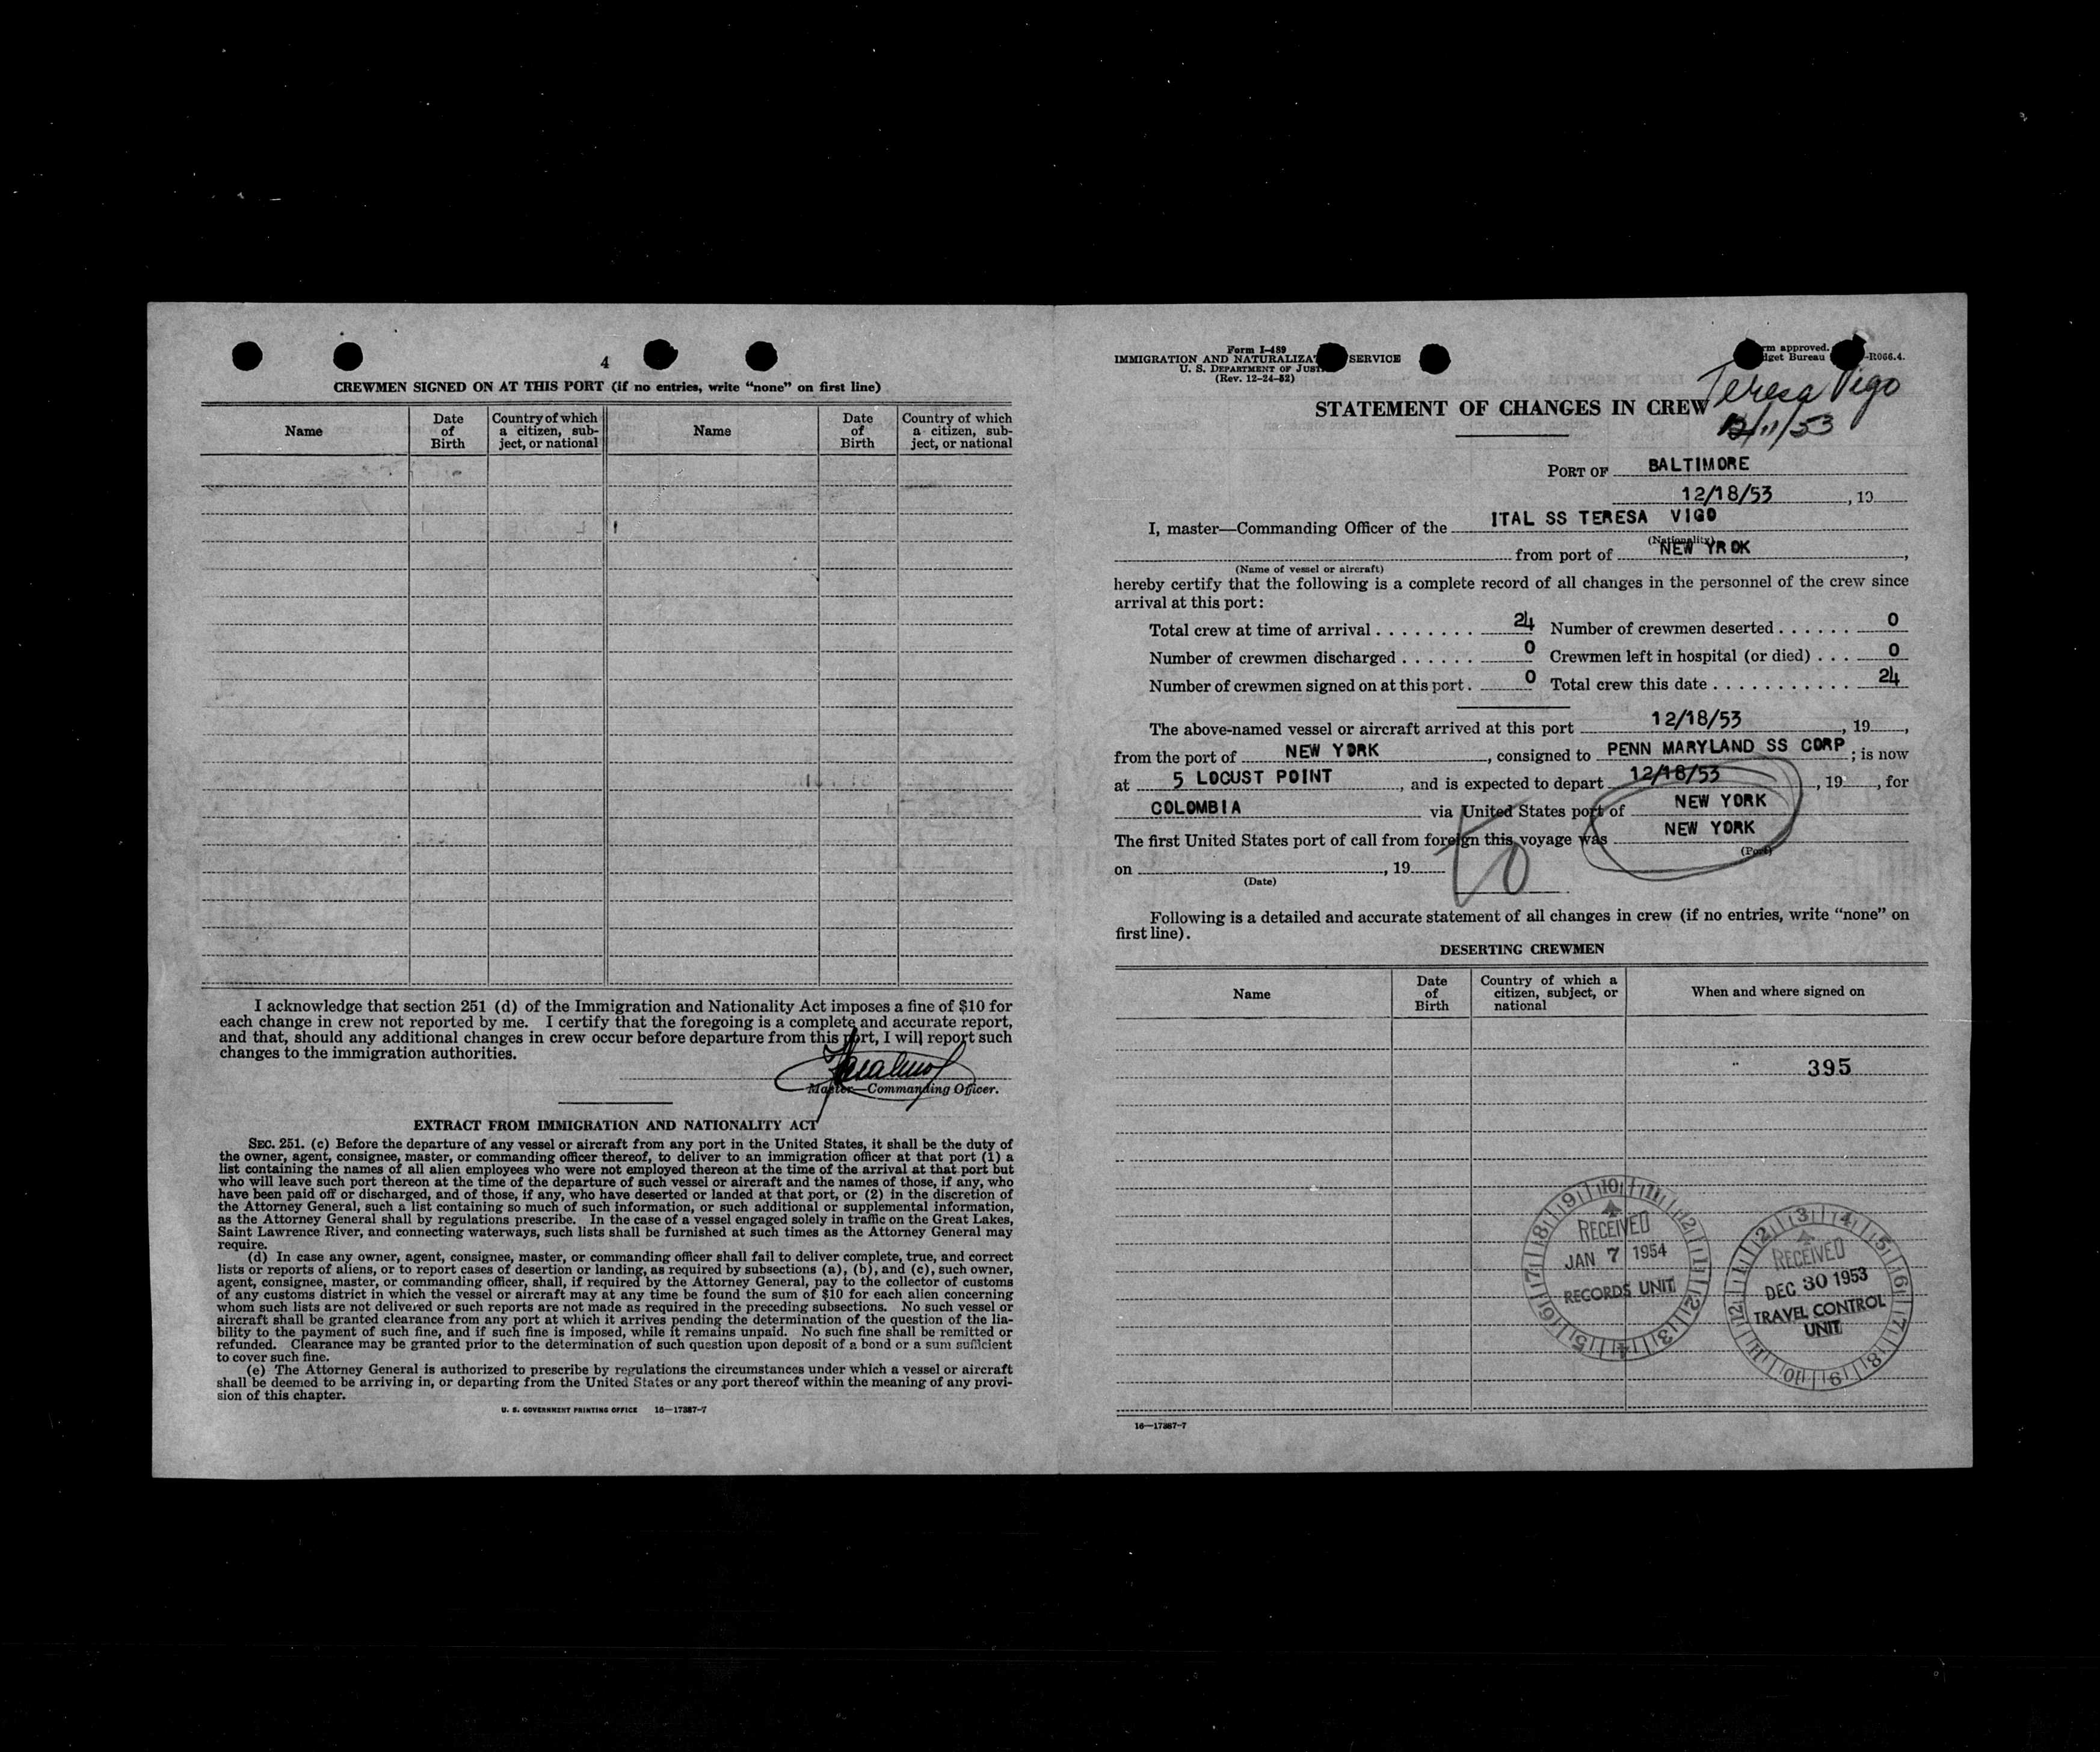 4
CREWMEN SIGNED ON AT THIS PORT (if no entries, write “none” on first line)
Name
Date of Birth
Country of which a citizen, sub- ject, or national
Name
Date of Birth
Country of which a citizen, sub- ject, or national
I acknowledge that section 251 (d) of the Immigration and Nationality Act imposes a fine of $10 for
each change in crew not reported by me. I certify that the foregoing is a complete and accurate report,
and that, should any additional changes in crew occur before departure from this port, I will report such
changes to the immigration authorities.
Master—Commanding Officer.
EXTRACT FROM IMMIGRATION AND NATIONALITY ACT
SEC. 251. (c) Before the departure of any vessel or aircraft from any port in the United States, it shall be the duty of
the owner, agent, consignee, master, or commanding officer thereof, to deliver to an immigration officer at that port (1) a
list containing the names of all alien employees who were not employed thereon at the time of the arrival at that port but
who will leave such port thereon at the time of the departure of such vessel or aircraft and the names of those, if any, who
have been paid off or discharged, and of those, if any, who have deserted or landed at that port, or (2) in the discretion of
the Attorney General, such a list containing so much of such information, or such additional or supplemental information,
as the Attorney General shall by regulations prescribe. In the case of a vessel engaged solely in traffic on the Great Lakes,
Saint Lawrence River, and connecting waterways, such lists shall be furnished at such times as the Attorney General may
require.
(d) In case any owner, agent, consignee, master, or commanding officer shall fail to deliver complete, true, and correct
lists or reports of aliens, or to report cases of desertion or landing, as required by subsections (a), (b), and (c), such owner,
agent, consignee, master, or commanding officer, shall, if required by the Attorney General, pay to the collector of customs
of any customs district in which the vessel or aircraft may at any time be found the sum of $10 for each alien concerning
whom such lists are not delivered or such reports are not made as required in the preceding subsections. No such vessel or
aircraft shall be granted clearance from any port at which it arrives pending the determination of the question of the lia-
bility to the payment of such fine, and if such fine is imposed, while it remains unpaid. No such fine shall be remitted or
refunded. Clearance may be granted prior to the determination of such question upon deposit of a bond or a sum sufficient
to cover such fine.
(e) The Attorney General is authorized to prescribe by regulations the circumstances under which a vessel or aircraft
shall be deemed to be arriving in, or departing from the United States or any port thereof within the meaning of any provi-
sion of this chapter.
U. S. GOVERNMENT PRINTING OFFICE 16—17387-7
Form I-489
IMMIGRATION AND NATURALIZA SERVICE
U. S. DEPARTMENT OF JUST
(Rev. 12-24-52)
rm approved.
dget Bureau -R066.4.
Teresa Vigo
12/11/53
STATEMENT OF CHANGES IN CREW
PORT OF BALTIMORE
12/18/53, 19
I, master—Commanding Officer of the ITAL SS TERESA VIGO
(Nationality)
from port of NEW YROK,
(Name of vessel or aircraft)
hereby certify that the following is a complete record of all changes in the personnel of the crew since
arrival at this port:
Total crew at time of arrival . . . . . . . . 24 Number of crewmen deserted . . . . . . 0
Number of crewmen discharged . . . . . . 0 Crewmen left in hospital (or died) . . . 0
Number of crewmen signed on at this port . 0 Total crew this date . . . . . . . . . . . 24
The above-named vessel or aircraft arrived at this port 12/18/53, 19,
from the port of NEW YORK, consigned to PENN MARYLAND SS CORP; is now
at 5 LOCUST POINT, and is expected to depart 12/18/53, 19, for
COLOMBIA via United States port of NEW YORK
The first United States port of call from foreign this voyage was NEW YORK
(Port)
on , 19
(Date)
Following is a detailed and accurate statement of all changes in crew (if no entries, write “none” on
first line).
DESERTING CREWMEN
Name
Date of Birth
Country of which a citizen, subject, or national
When and where signed on
395
RECEIVED
JAN 7 1954
RECORDS UNIT
RECEIVED
DEC 30 1953
TRAVEL CONTROL
UNIT
16—17387-7